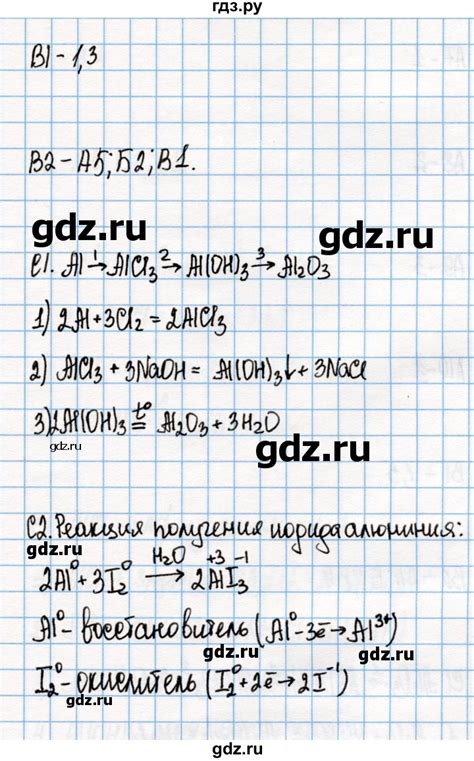 гдз.ру
В1 - 1,3
В2 - А5; Б2; В1.
gdz.ru
gdz.ru
С1. Al →¹ AlCl₃ →² Al(OH)₃ →³ Al₂O₃
1) 2Al + 3Cl₂ = 2AlCl₃
2) AlCl₃ + 3NaOH = Al(OH)₃↓ + 3NaCl
3) 2Al(OH)₃ =^{t°} Al₂O₃ + 3H₂O
gdz.ru
gdz.ru
С2. Реакция получения иодида алюминия:
2Al⁰ + 3I₂⁰ →^{H₂O} 2Al⁺³I₃⁻¹
gdz.ru
Al⁰ - восстановитель (Al⁰ - 3ē → Al³⁺)
I₂⁰ - окислитель (I₂⁰ + 2ē → 2I⁻¹)
gdz.ru
gdz.ru
gdz.ru